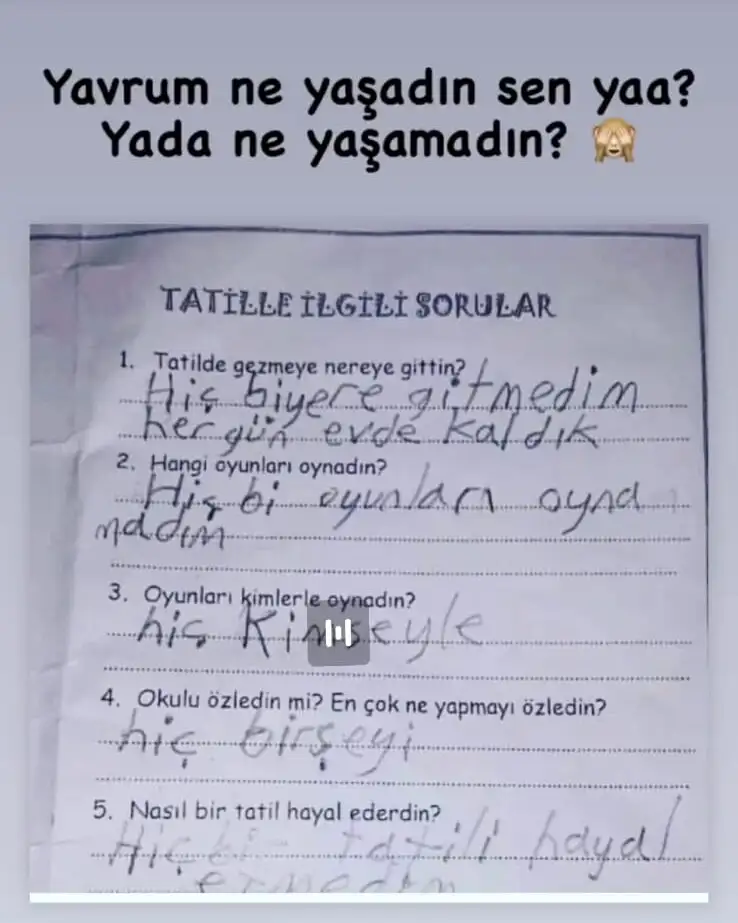 Yavrum ne yaşadın sen yaa?
Yada ne yaşamadın?
TATİLLE İLGİLİ SORULAR
1. Tatilde gezmeye nereye gittin?
Hiç biyere gitmedim
her gün evde kaldık
2. Hangi oyunları oynadın?
Hiç bi oyunları oyna
madım
3. Oyunları kimlerle oynadın?
hiç Kimseyle
4. Okulu özledin mi? En çok ne yapmayı özledin?
hiç birşeyi
5. Nasıl bir tatil hayal ederdin?
Hiç bir tatili hayal
etmedim